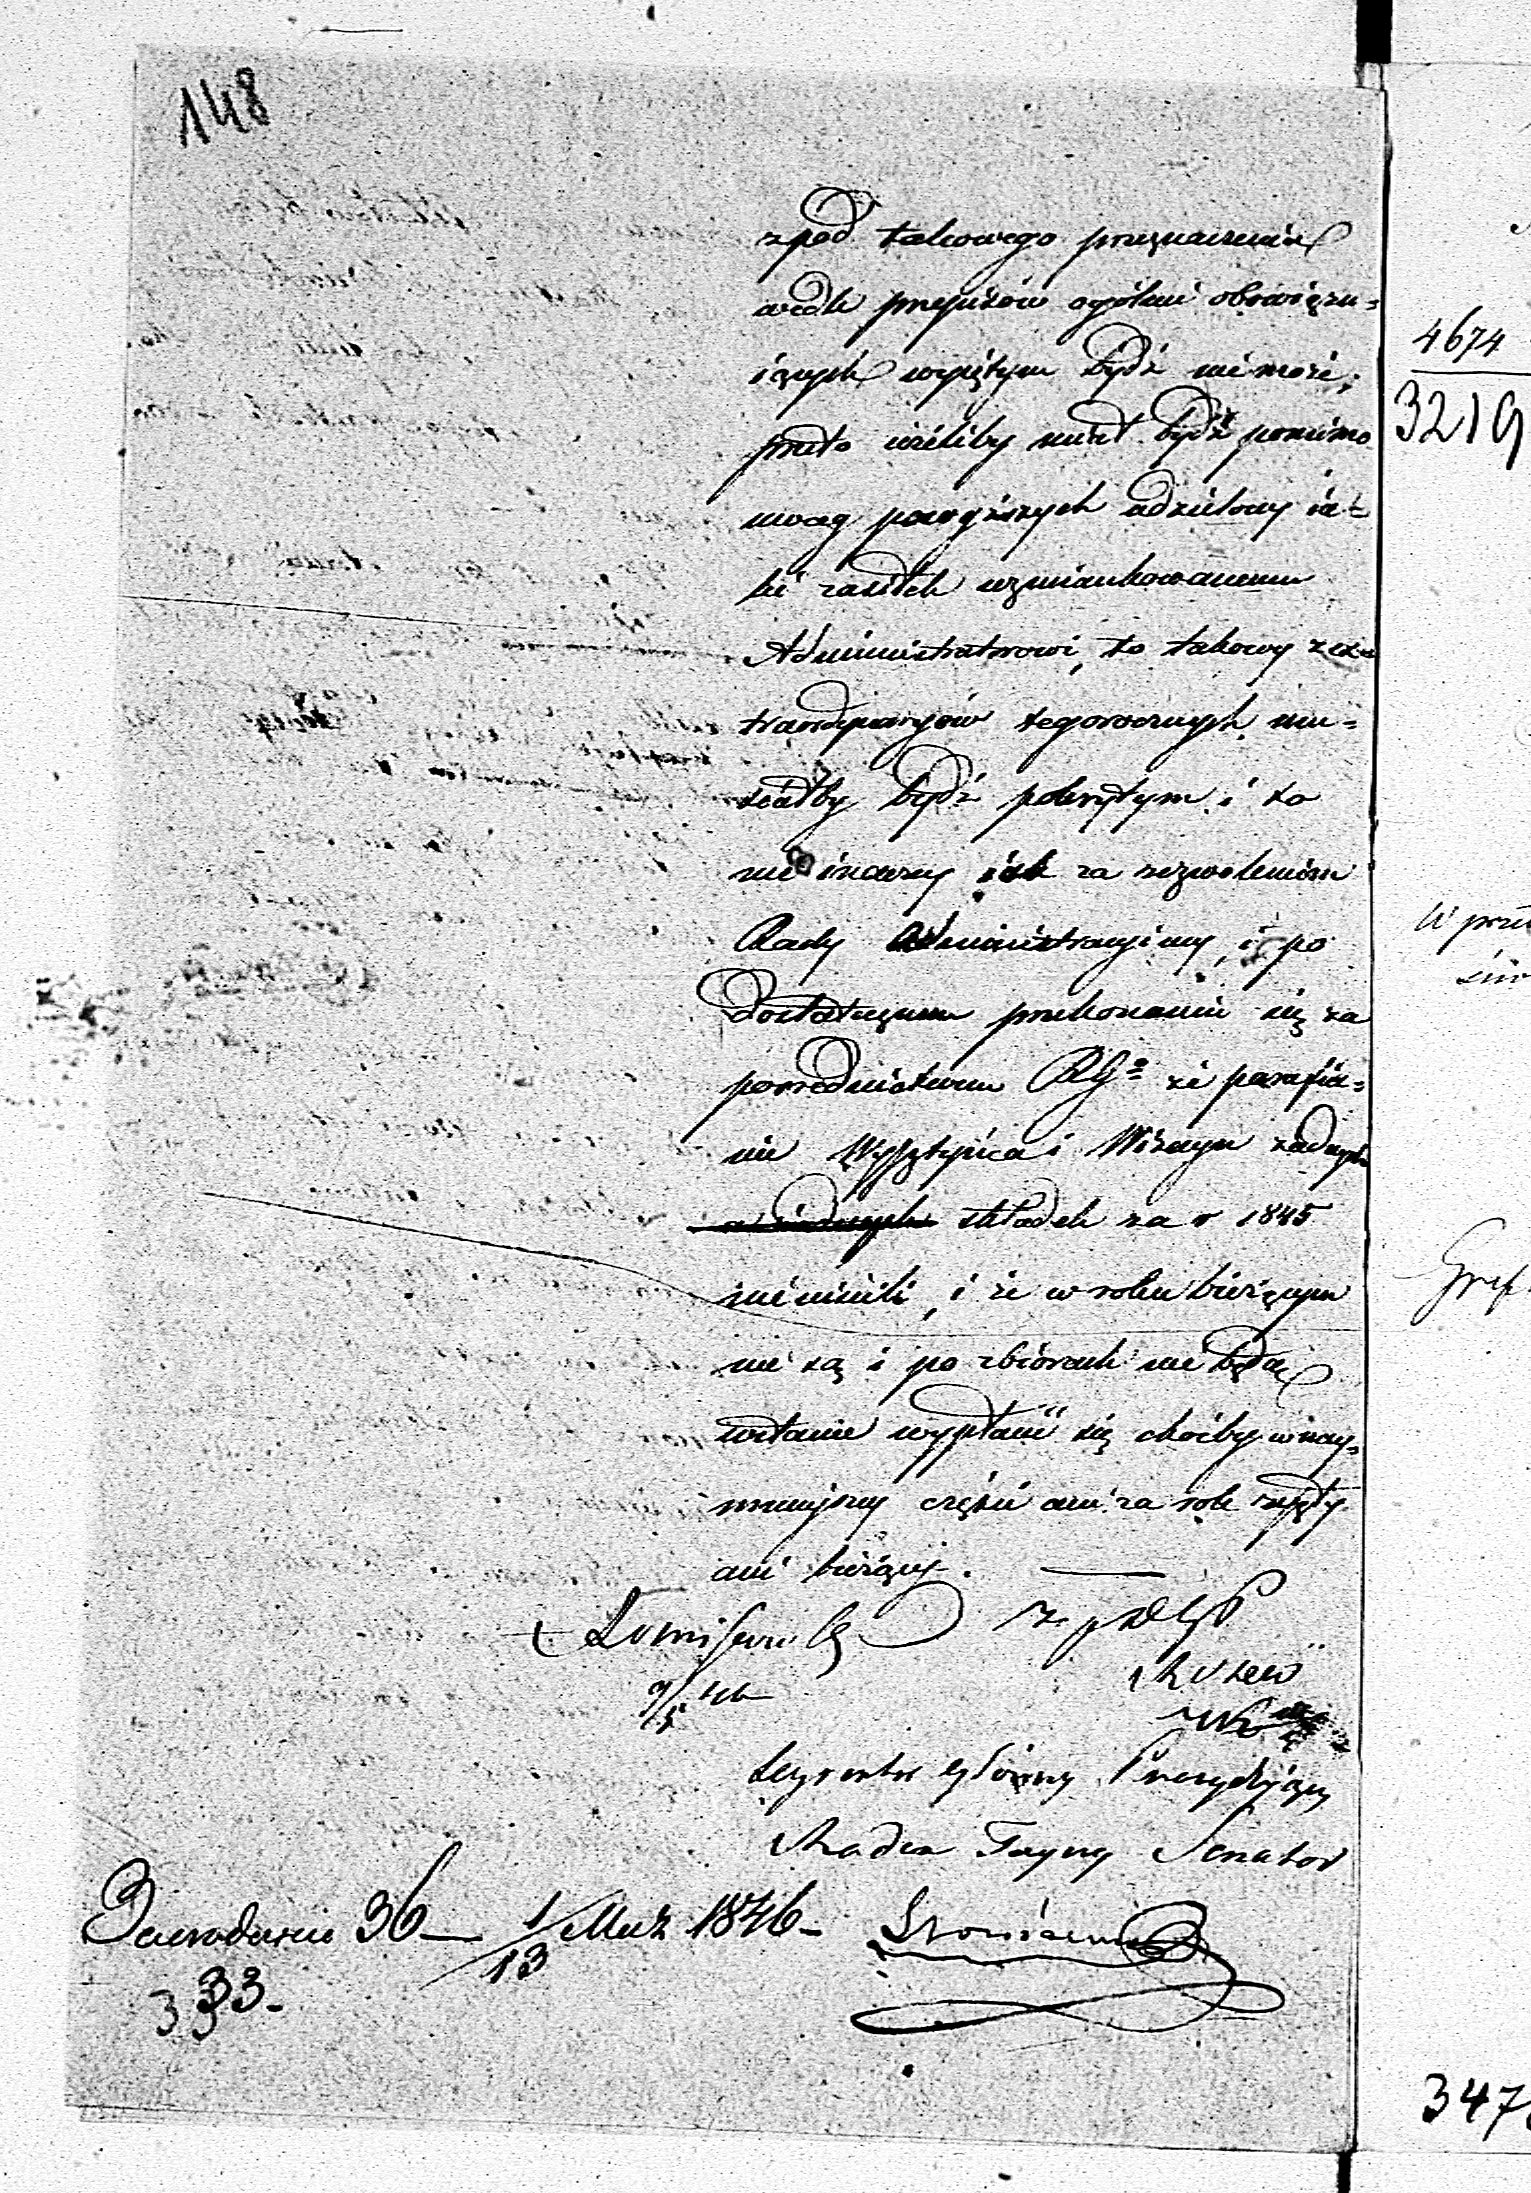 148
zpod takowego przeznaczenia
wedle przepisów ogólnie obowiązu=
iących wyiętym bydź nie może;
przeto ieżeliby miał bydź pomimo
uwag powyższych udzielony ia=
ki zasiłek wzmiankowanemu
Administratorowi, to takowy z ex=
traordynaryów tegorocznych mu=
siałby bydź pokrytym i to
nie inaczey iak za zezwoleniem
Rady Administracyiney, i po
dostatecznem przekonaniu się za
pośrednictwem RGo że parafia=
nie Wysztyńca i Wiżayn żadnych
składek za r 1845
nie uiścili, i że w roku bieżącym
nie są i po zbiorach nie będą
w stanie wypłacić się choćby w nay=
mnieyszey części ani za rok zeszły
ani bieżący.
9/5 46
Dyrektor Główny Prezyduiący
Radca Tayny Senator
36 1/13 Maz 1846
333.
4674
3219
W prze
Grzeg
347